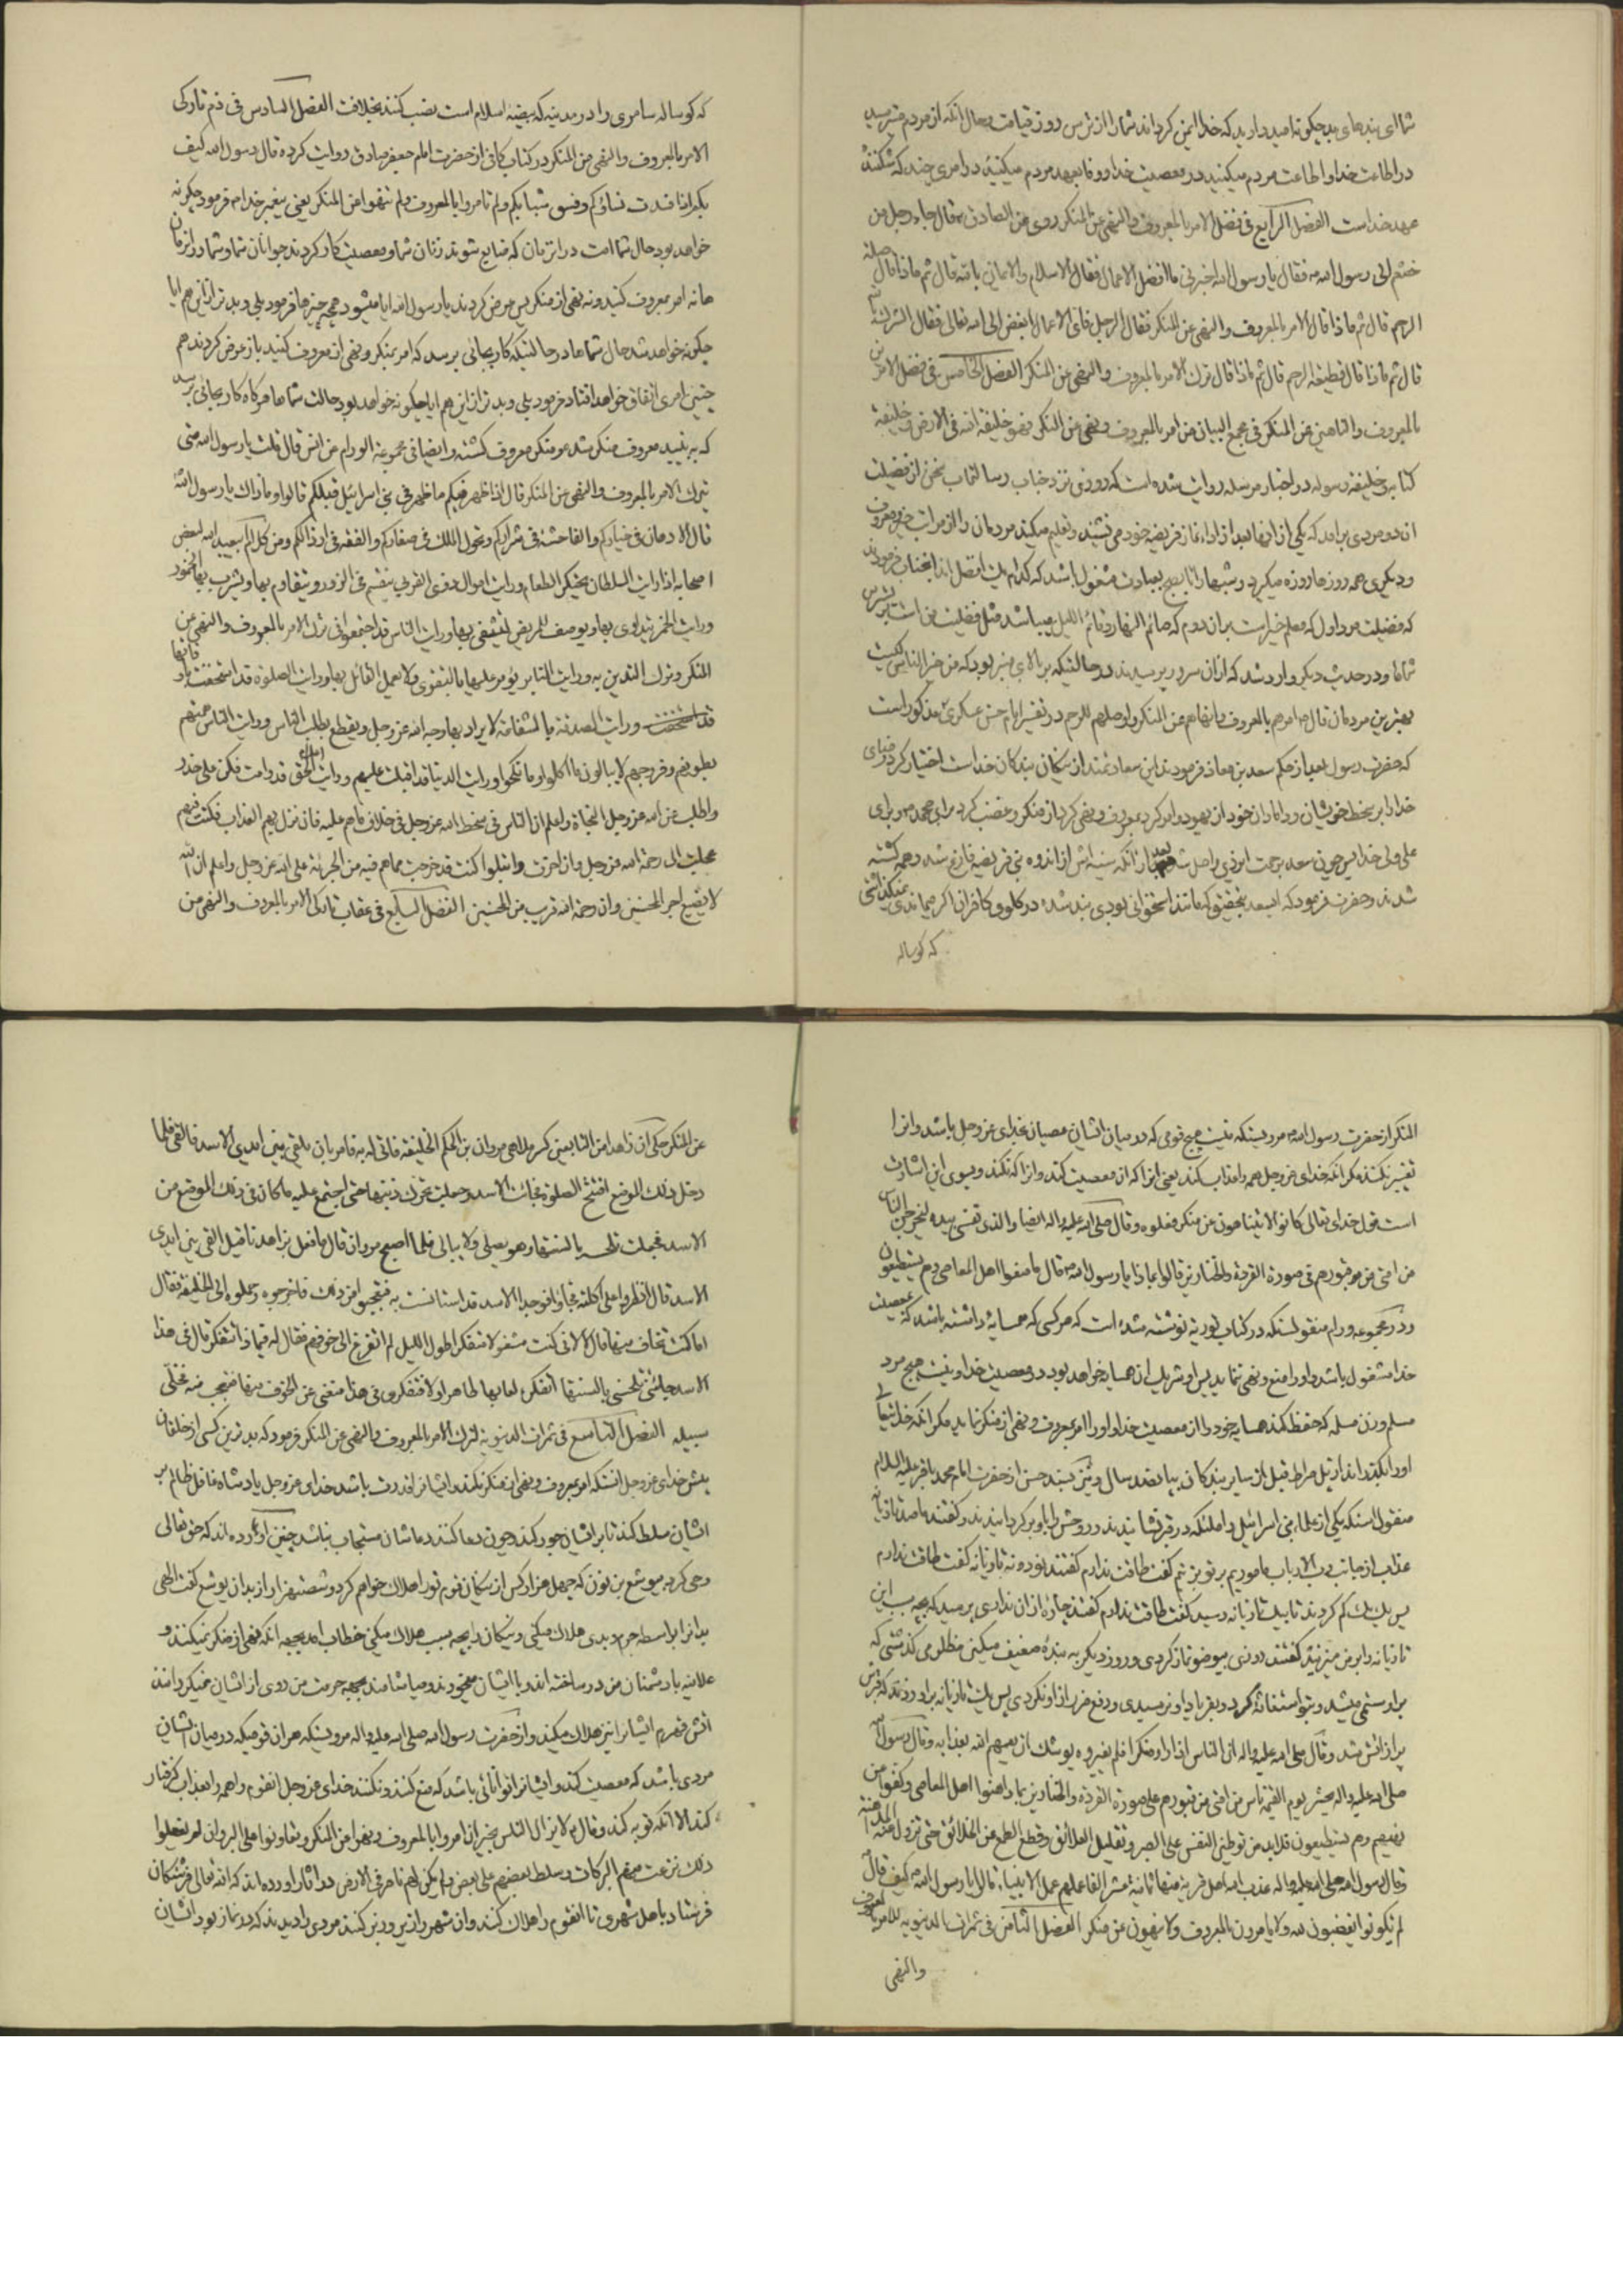 شما ای بندهای بد چکونه امید دارید که خدا ایمن کرداند شما را از ترس روز قیامت و حال انکه از مردم میترسید
در اطاعت خدا و اطاعت مردم میکنید در معصیت خدا و وفا بعهد مردم میکنید در امری چند که شکننده
عهد خداست الفصل الرابع فی فضل الامر بالمعروف والنهی عن المنکر روی عن الصادق قال جاء رجل من
خثعم الی رسول الله فقال یا رسول الله اخبرنی ما افضل الاعمال فقال الاسلام والایمان بالله قال ثم ماذا قال صلة
الرحم قال ثم ماذا قال الامر بالمعروف والنهی عن المنکر فقال الرجل فای الاعمال ابغض الی الله تعالی فقال الشرک بالله
قال ثم ماذا قال قطیعة الرحم قال ثم ماذا قال ترک الامر بالمعروف والنهی عن المنکر الفصل الخامس فی فضل الامرین
بالمعروف والناهین عن المنکر فی مجمع البیان من امر بالمعروف ونهی عن المنکر فهو خلیفة الله فی الارض وخلیفة
کتابه وخلیفة رسوله در اخبار مرسله روایت شده است که روزی نزد جناب رسالتماب سخن از فضیلت
ان دو مردی برامد که یکی از انها بعد از اداء نماز فریضه خود می نشیند و تعلیم میکند مردمان را از مراتب خیر و معروف
و دیکری همه روزها روزه میکیرد و شبها را تا بصبح بعبادت مشغول باشد که کدام یک افضل اند انجناب فرمودند
که فضیلت مرد اول که معلم خیر است بران دوم که صائم النهار و قائم اللیل میباشد مثل فضیلت من است بر
شماها و در حدیث دیکر وارد شد که از ان سرور پرسیدند در حالتیکه بر بالای منبر بود که من خیر الناس کیست
بهترین مردمان قال امرهم بالمعروف وانهاهم عن المنکر واوصلهم للرحم در تفسیر امام حسن عسکری مذکور است
که حضرت رسول بعد از حکم سعد بن معاذ فرمودند این سعادتمند از نیکان بندکان خداست اختیار کرد رضای
خدا را بر سخط خویشان و دامادان خود از یهود و امر کرد بمعروف و نهی کرد از منکر و غضب کرد برای محمد و برای
علی ولی خدا پس چون سعد برحمت ایزدی واصل شد بعد از انکه سینه اش از اندوه بنی قریضه فارغ شد و همه کشته
شدند و حضرت فرمود که ای سعد بتحقیق که مانند استخوانی بودی بند شده در کلوی کافران اکر میماندی نمیکذاشتی
که کوساله
که کوساله سامری را در مدینه که بیضه اسلام است نصب کنند بخلافت الفصل السادس فی ذم تارکی
الامر بالمعروف والنهی عن المنکر در کتاب کافی از حضرت امام جعفر صادق روایت کرده قال رسول الله کیف
بکم اذا فسدت نساؤکم وفسق شبابکم ولم تامروا بالمعروف ولم تنهوا عن المنکر یعنی پیغمبر خدا فرمود چکونه
خواهد بود حال شما امت در انزمان که ضایع شوند زنان شما و معصیت کار کردند جوانان شما و شما در انزمان
ها نه امر بمعروف کنید و نه نهی از منکر پس عرض کردند یا رسول الله ایا میشود همچه چیزها فرمود بلی و بدتر از این هم ایا
چکونه خواهد شد حال شماها در حالتیکه کار بجائی برسد که امر بمنکر و نهی از معروف کنید باز عرض کردند هم
چنین امری اتفاق خواهد افتاد فرمود بلی و بدتر از این هم ایا چکونه خواهد بود حالت شماها هرکاه کار بجائی برسد
که ببینید معروف منکر شده و منکر معروف کشته وایضا فی مجموعة الورام عن انس قال قلت یا رسول الله متی
نترک الامر بالمعروف والنهی عن المنکر قال اذا ظهر فیکم ما ظهر فی بنی اسرائیل قبلکم قالوا وما ذاک یا رسول الله
قال الادهان فی خیارکم والفاحشة فی شرارکم وتحول الملک فی صغارکم والفقه فی ارذالکم ومن کلام ابیعبدالله لبعض
اصحابه اذا رایت السلطان یحتکر الطعام ورایت اموال ذوی القربی یقسم فی الزور ویتقامر بها ویشرب بها الخمور
ورایت الخمر یتداوی بها ویوصف للمریض لیشتفی بها ورایت الناس قد اجتمعوا فی ترک الامر بالمعروف والنهی عن
المنکر وترک التدین به ورایت المنابر یؤمر علیها بالتقوی ولا یعمل القائل بها ورایت الصلوة قد استخفت باوقاتها
ورایت الصدقة بالشفاعة لا یراد بها وجه الله عز وجل ویقطع بطلب الناس ورایت الناس همتهم
بطونهم وفروجهم لا یبالون ما اکلوا وما نکحوا ورایت الدنیا قد اقبلت علیهم ورایت اعلام الحق قد درست فکن علی حذر
واطلب من الله عز وجل النجاة واعلم ان الناس فی سخط الله عز وجل فی خلاف ما هم علیه فان نزل بهم العذاب فکنت فیهم
عجلت الی رحمة الله عز وجل وان اخرت وابتلوا کنت قد خرجت مما هم فیه من الجرءة علی الله عز وجل واعلم ان الله
لا یضیع اجر المحسنین وان رحمة الله قریب من المحسنین الفصل السابع فی عقاب تارکی الامر بالمعروف والنهی عن
المنکر از حضرت رسول الله مرویستکه نیست هیچ قومی که در میان ایشان عصیان بخدای عز وجل باشد و انرا
تغییر نکنند مکر انکه خدای عز وجل همه را عذاب کند یعنی انرا که ان معصیت کند و انرا که نکند و بسوی این اشارت
است قول خدای تعالی کانوا لا یتناهون عن منکر فعلوه وقال صلی الله علیه واله ایضا والذی نفسی بیده لیخرجن الناس
من امتی من قبورهم فی صورة القردة والخنازیر قالوا بماذا یا رسول الله قال داهنوا اهل المعاصی وهم یستطیعون
و در مجموعه ورام منقولستکه در کتاب توریة نوشته شده است که هر کسی که همسایه داشته باشد که بمعصیت
خدا مشغول باشد و او را منع و نهی ننماید پس او شریک ان همسایه خواهد بود در معصیت خدا و نیست هیچ مرد
مسلم و زن مسلمه که حفظ کند همسایه خود را از معصیت خدا و او را امر بمعروف و نهی از منکر نماید مکر انکه خدایتعالی
او را بکذراند از پل صراط قبل از سایر بندکان بپانصد سال و نیز بسند حسن از حضرت امام محمد باقر علیه السلام
منقول استکه یکی از علماء بنی اسرائیل را ملئکه در قبر نشانیدند و روحش را باو بر کردانیدند و کفتند ما صد تازیانه
عذاب از جانب رب الارباب مامور یم بر تو بزنیم کفت طاقت ندارم کفتند نود و نه تازیانه کفت طاقت ندارم
پس یک یک کم کردند تا بیک تازیانه رسید کفت طاقت ندارم کفتند چاره از ان نداری پرسید که بچه سبب این
تازیانه را بر من میزنید کفتند روزی بیوضو نماز کردی و روز دیکر به بنده ضعیف میکنی مظلومی کذشتی که
بر او ستمی میشد و بتو استغاثه کرد و بفریاد او نرسیدی و دفع ضرر از او نکردی پس یک تازیانه بر او زدند که قبرش
پر از اتش شد وقال صلی الله علیه واله ان الناس اذا راوا منکرا فلم یغیروه یوشک ان یعمهم الله بعذابه وقال رسول الله
صلی الله علیه واله یحشر یوم القیمة ناس من امتی من قبورهم علی صورة القردة والخنازیر بما داهنوا اهل المعاصی وکفوا من
نهیهم وهم یستطیعون فلا بد من توطین النفس علی الصبر وتقلیل العلائق وقطع الطمع عن الخلائق حتی تزول عنه المداهنة
وقال رسول الله صلی الله علیه واله عذب الله اهل قریة فیها ثمانیة عشر الفا عملهم عمل الانبیاء قالوا یا رسول الله کیف قال
لم یکونوا یغضبون لله ولا یامرون بالمعروف ولا ینهون عن منکر الفصل الثامن فی ثمرات الدنیویه للامر بالمعروف
والنهی
عن المنکر حکی ان زاهدا من التابعین کسر ملاهی مروان بن الحکم الخلیفة فاتی له به فامر بان یلقی بین ایدی الاسد فالقی فلما
دخل ذلک الموضع افتتح الصلوة فجائت الاسد وجعلت تحرک ذنبها حتی اجتمع علیه ما کان فی ذلک الموضع من
الاسد فجعلت تلحسه بالسنتها وهو یصلی ولا یبالی فلما اصبح مروان قال ما فعل بزاهدنا قیل القی بین ایدی
الاسد قال انظروا هل اکلته فجاؤا فوجدوا الاسد قد استانست به فتعجبوا من ذلک فاخرجوه وحملوه الی الخلیفة فقال
اما کنت تخاف منها قال لا انی کنت مشغولا متفکرا طول اللیل لم اتفرغ الی خوفهم فقال له فیماذا تتفکر قال فی هذا
الاسد جائنی تلحسنی بالسنتها اتفکر لعابها طاهر اولا فتفکری فی هذا منعنی عن الخوف منها فتعجب منه فخلی
سبیله الفصل التاسع فی ثمرات الدنیویه لترک الامر بالمعروف والنهی عن المنکر فرمود که بدترین کسی از خلقان
پیش خدای عز وجل انستکه امر بمعروف و نهی از منکر نکند و ایشانرا قدرت باشد خدای عز وجل پادشاه غافل ظالم بر
ایشان مسلط کند تا بر ایشان جور کند و چون دعا کنند دعاشان مستجاب نباشد چنین اورده اند که حق تعالی
وحی کرد به یوشع بن نون که چهل هزار کس از نیکان قوم تو را هلاک خواهم کرد و شصت هزار از بدان یوشع کفت الهی
بدانرا بواسطه جرم و بدی هلاک میکنی و نیکان را بچه سبب هلاک میکنی خطاب امد بجهه انکه نهی از منکر نمیکنند و
علانیه با دشمنان من در ساخته اند و با ایشان میخورند و میاشامند و بجهه حرمت من روی از ایشان نمیکردانند
اتش قهرم ایشانرا نیز هلاک میکند و از حضرت رسول الله صلی الله علیه واله مرویستکه هر ان قومیکه در میان ایشان
مردی باشد که معصیت کند و ایشانرا توانائی باشد که منع کنند و نکنند خدای عز وجل انقوم را همه را بعذاب کرفتار
کند الا انکه توبه کند وقال لا یزال الناس بخیر ان امروا بالمعروف ونهوا عن المنکر وتعاونوا علی البر وان لم یفعلوا
ذلک نزعت منهم البرکات وسلط بعضهم علی بعض ولم یکن لهم ناصر فی الارض در اثار اورده اند که الله تعالی فرشتکان
فرستاد باهل شهری تا انقوم را هلاک کنند و ان شهر را زیر و زبر کنند مردی را دیدند که در نماز بود ایشان